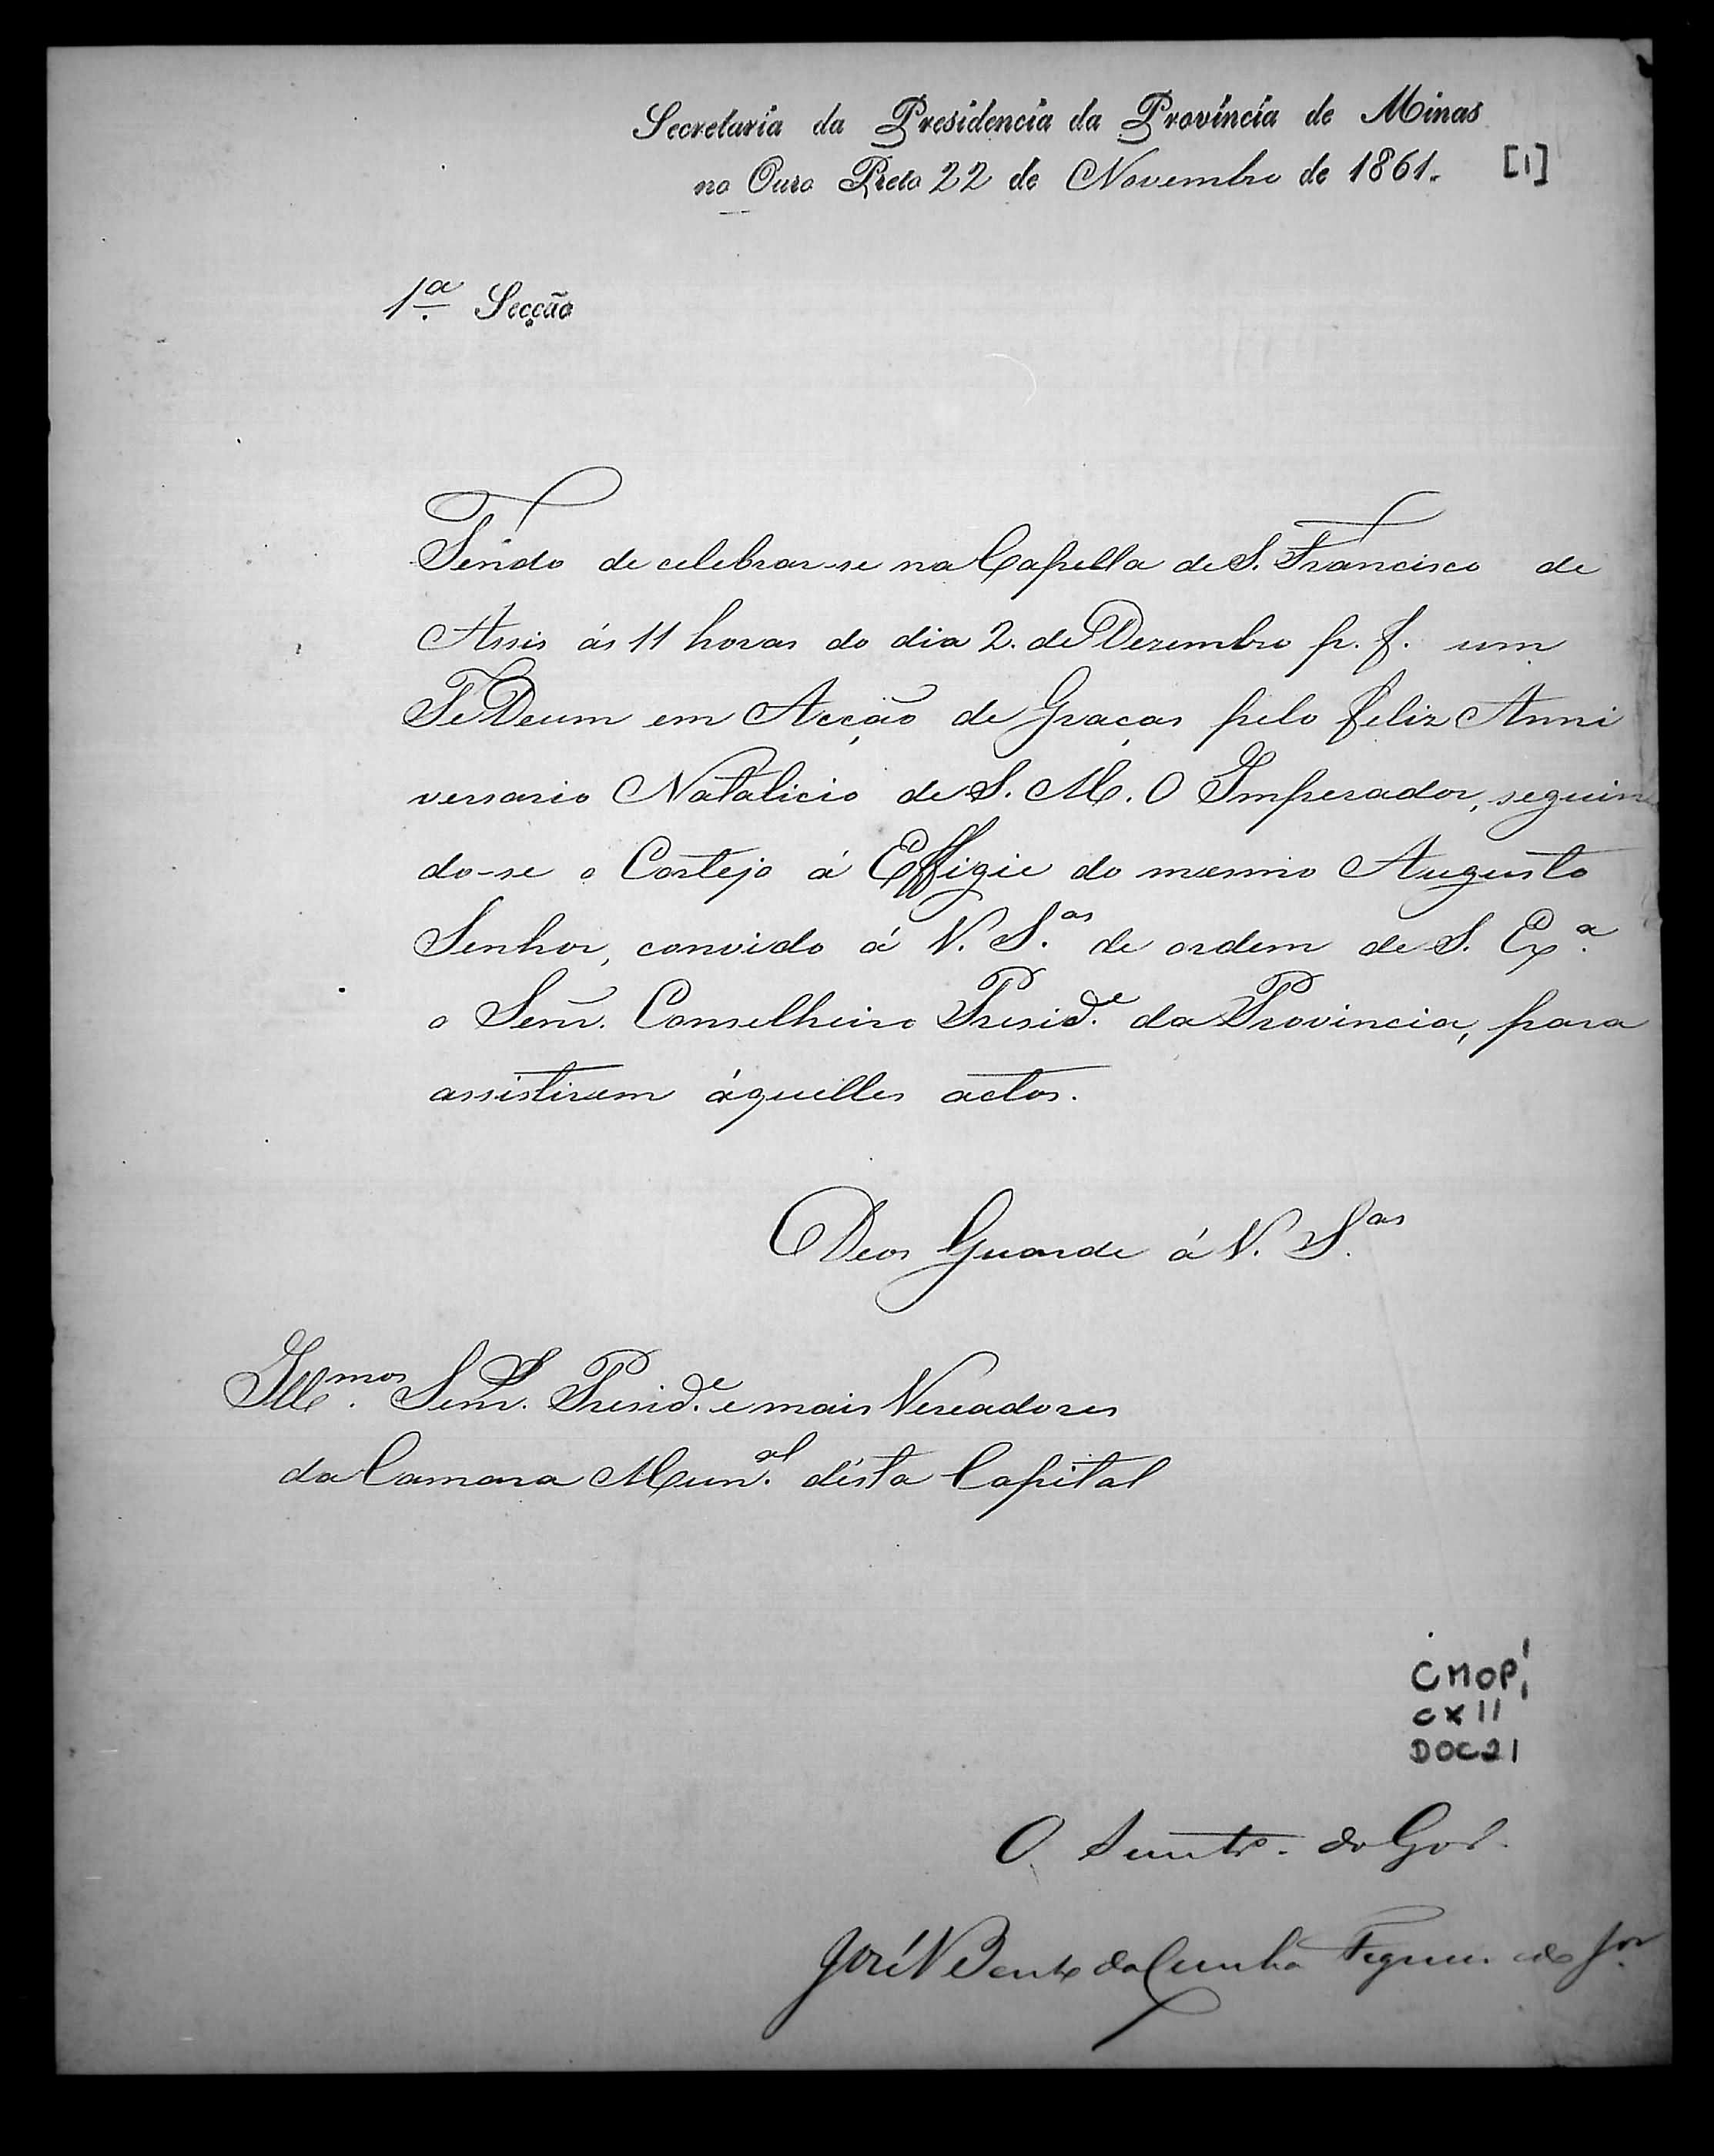 Secretaria da Presidencia da Provincia de Minas
no Ouro Preto 22 de Novembro de 1861. [1]
1.ª Secção
Tendo de celebrar-se na Capella de S. Francisco de
Assis ás 11 horas do dia 2. de Dezembro p. f. um
Te Deum em Acção de Graças pelo feliz Anni
versario Natalicio de S. M. O Imperador, seguin
do-se o Cortejo á Effigie do mesmo Augusto
Senhor, convido á V. S.as de ordem de S. Ex.ª
o Senr. Conselheiro Presid.e da Provincia, para
assistirem áquelles actos.
Deos Guarde á V. S.as
Ill.mos Senr.s Presid.e e mais Vereadores
da Camara Mun.al désta Capital
CMOP
CX 11
DOC 21
O do Gov.
José Bento da Cunha Figueiredo Jor.